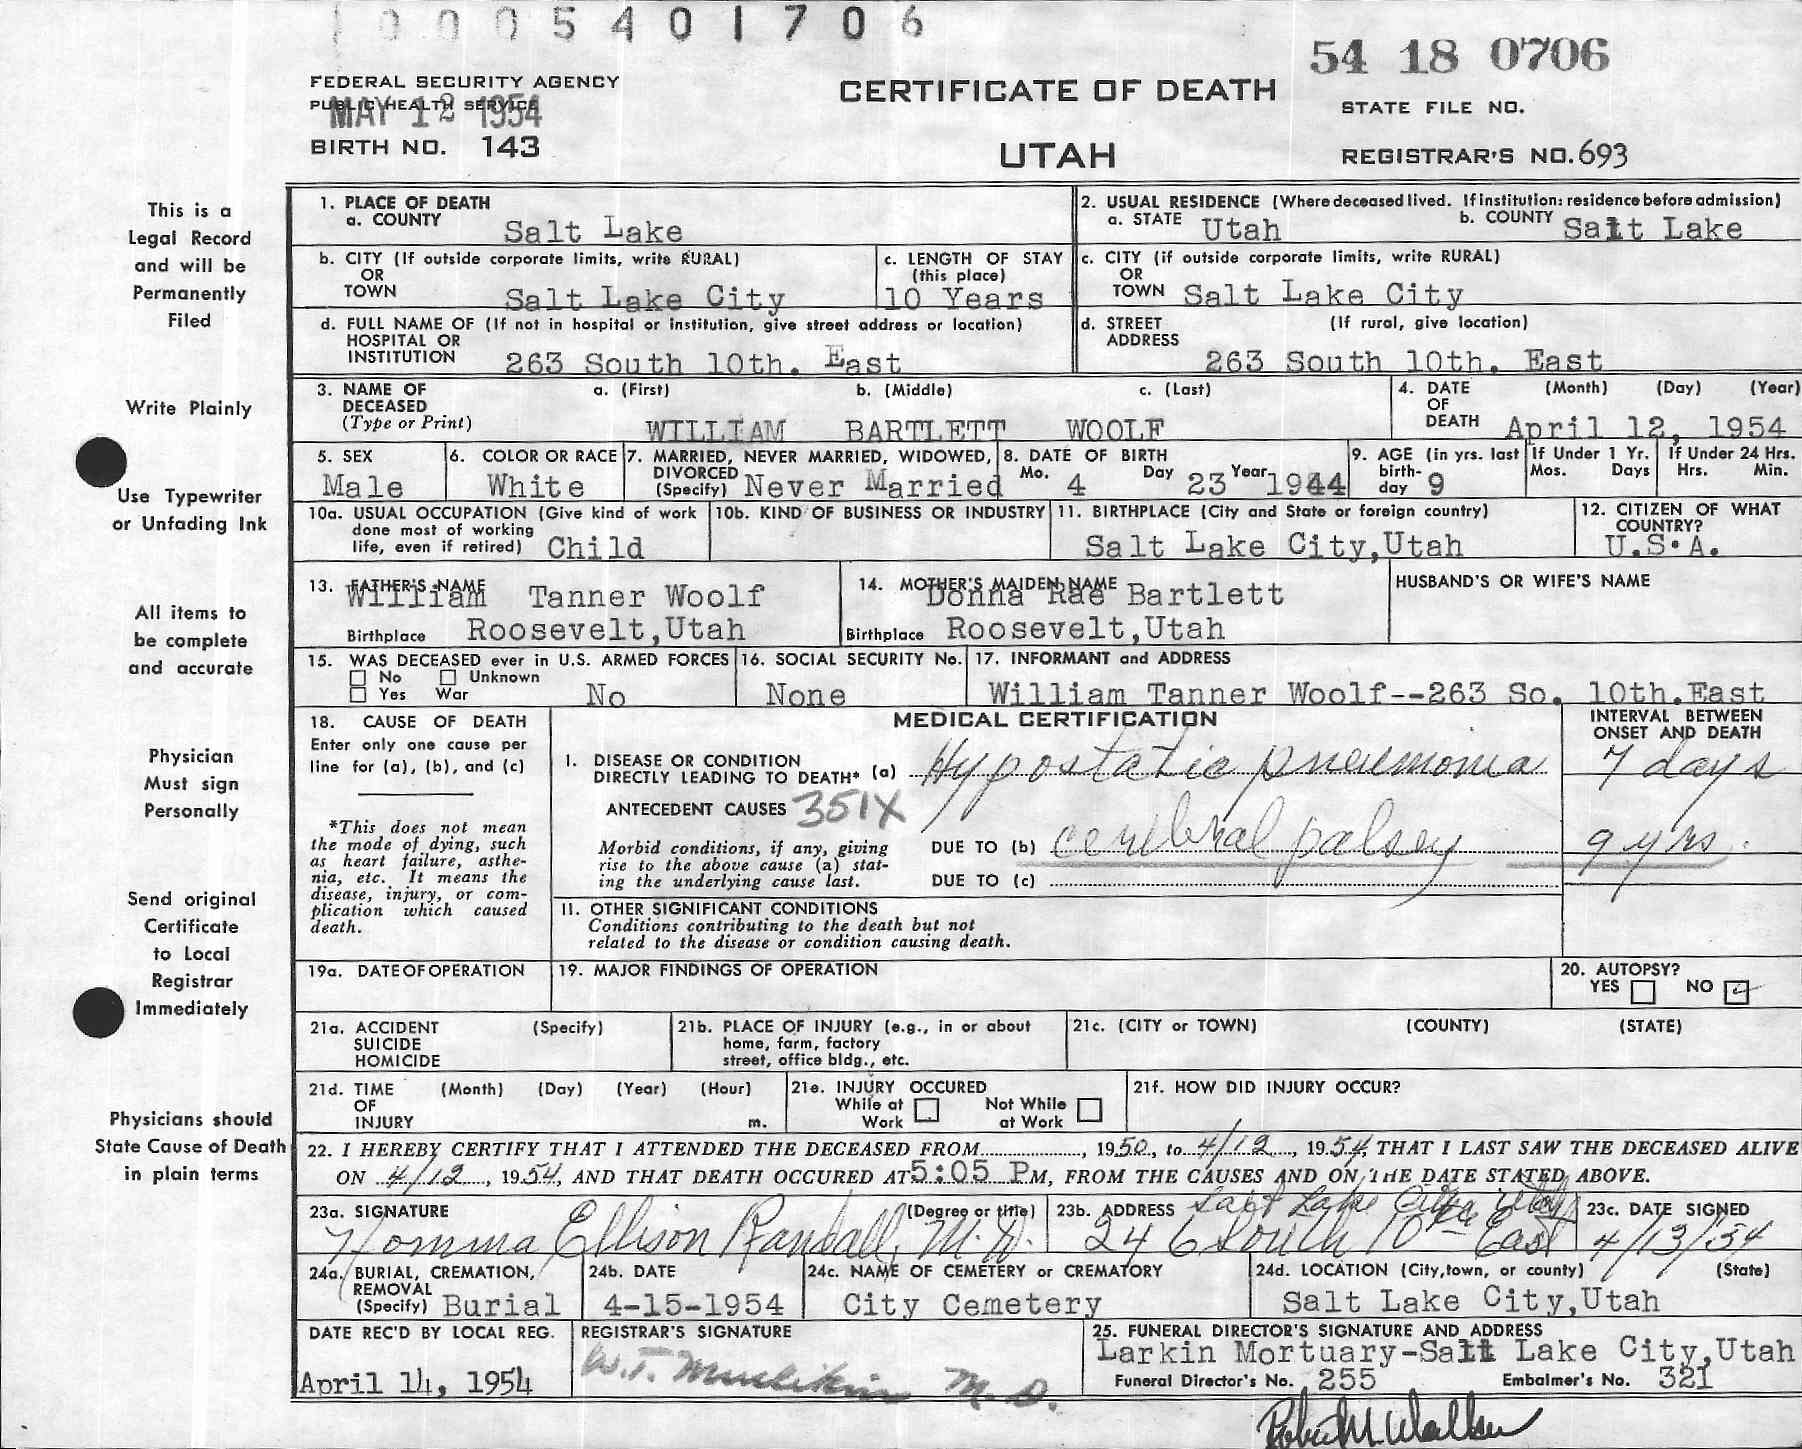 1 0 0 0 5 4 0 1 7 0 6
54 18 0706
FEDERAL SECURITY AGENCY
PUBLIC HEALTH SERVICE
MAY 12 1954
CERTIFICATE OF DEATH
STATE FILE NO.
BIRTH NO. 143
UTAH
REGISTRAR'S NO. 693
This is a
Legal Record
and will be
Permanently
Filed
Write Plainly
Use Typewriter
or Unfading Ink
All items to
be complete
and accurate
Physician
Must sign
Personally
Send original
Certificate
to Local
Registrar
Immediately
Physicians should
State Cause of Death
in plain terms
1. PLACE OF DEATH
a. COUNTY Salt Lake
2. USUAL RESIDENCE (Where deceased lived. If institution: residence before admission)
a. STATE Utah b. COUNTY Salt Lake
b. CITY (If outside corporate limits, write RURAL)
OR
TOWN Salt Lake City
c. LENGTH OF STAY
(this place)
10 Years
c. CITY (if outside corporate limits, write RURAL)
OR
TOWN Salt Lake City
d. FULL NAME OF (If not in hospital or institution, give street address or location)
HOSPITAL OR
INSTITUTION 263 South 10th. East
d. STREET (If rural, give location)
ADDRESS
263 South 10th. East
3. NAME OF a. (First) b. (Middle) c. (Last)
DECEASED
(Type or Print) WILLIAM BARTLETT WOOLF
4. DATE (Month) (Day) (Year)
OF
DEATH April 12, 1954
5. SEX
Male
6. COLOR OR RACE
White
7. MARRIED, NEVER MARRIED, WIDOWED,
DIVORCED
(Specify) Never Married
8. DATE OF BIRTH
Mo. 4 Day 23 Year 1944
9. AGE (in yrs. last
birth-
day 9
If Under 1 Yr.
Mos. Days
If Under 24 Hrs.
Hrs. Min.
10a. USUAL OCCUPATION (Give kind of work
done most of working
life, even if retired) Child
10b. KIND OF BUSINESS OR INDUSTRY
11. BIRTHPLACE (City and State or foreign country)
Salt Lake City,Utah
12. CITIZEN OF WHAT
COUNTRY?
U.S.A.
13. FATHER'S NAME
William Tanner Woolf
Birthplace Roosevelt,Utah
14. MOTHER'S MAIDEN NAME
Donna Rae Bartlett
Birthplace Roosevelt,Utah
HUSBAND'S OR WIFE'S NAME
15. WAS DECEASED ever in U.S. ARMED FORCES
No Unknown
Yes War No
16. SOCIAL SECURITY No.
None
17. INFORMANT and ADDRESS
William Tanner Woolf--263 So. 10th.East
18. CAUSE OF DEATH
Enter only one cause per
line for (a), (b), and (c)
*This does not mean
the mode of dying, such
as heart failure, asthe-
nia, etc. It means the
disease, injury, or com-
plication which caused
death.
MEDICAL CERTIFICATION
INTERVAL BETWEEN
ONSET AND DEATH
I. DISEASE OR CONDITION
DIRECTLY LEADING TO DEATH* (a) Hypostatic pneumonia 7 days
ANTECEDENT CAUSES 351X
Morbid conditions, if any, giving
rise to the above cause (a) stat-
ing the underlying cause last.
DUE TO (b) cerebral palsey 9 yrs.
DUE TO (c)
II. OTHER SIGNIFICANT CONDITIONS
Conditions contributing to the death but not
related to the disease or condition causing death.
19a. DATE OF OPERATION
19. MAJOR FINDINGS OF OPERATION
20. AUTOPSY?
YES NO
21a. ACCIDENT (Specify)
SUICIDE
HOMICIDE
21b. PLACE OF INJURY (e.g., in or about
home, farm, factory
street, office bldg., etc.
21c. (CITY or TOWN) (COUNTY) (STATE)
21d. TIME (Month) (Day) (Year) (Hour)
OF
INJURY m.
21e. INJURY OCCURED
While at Not While
Work at Work
21f. HOW DID INJURY OCCUR?
22. I HEREBY CERTIFY THAT I ATTENDED THE DECEASED FROM, 1950, to 4/12, 1954, THAT I LAST SAW THE DECEASED ALIVE
ON 4/12, 1954, AND THAT DEATH OCCURED AT 5:05 PM, FROM THE CAUSES AND ON THE DATE STATED ABOVE.
23a. SIGNATURE (Degree or title)
Ellison Randall, M.D.
23b. ADDRESS Salt Lake City Utah
246 South 10th East
23c. DATE SIGNED
4/13/54
24a. BURIAL, CREMATION,
REMOVAL
(Specify) Burial
24b. DATE
4-15-1954
24c. NAME OF CEMETERY or CREMATORY
City Cemetery
24d. LOCATION (City,town, or county) (State)
Salt Lake City,Utah
DATE REC'D BY LOCAL REG.
April 14, 1954
REGISTRAR'S SIGNATURE
W.T. M.D.
25. FUNERAL DIRECTOR'S SIGNATURE AND ADDRESS
Larkin Mortuary-Salt Lake City,Utah
Funeral Director's No. 255 Embalmer's No. 321